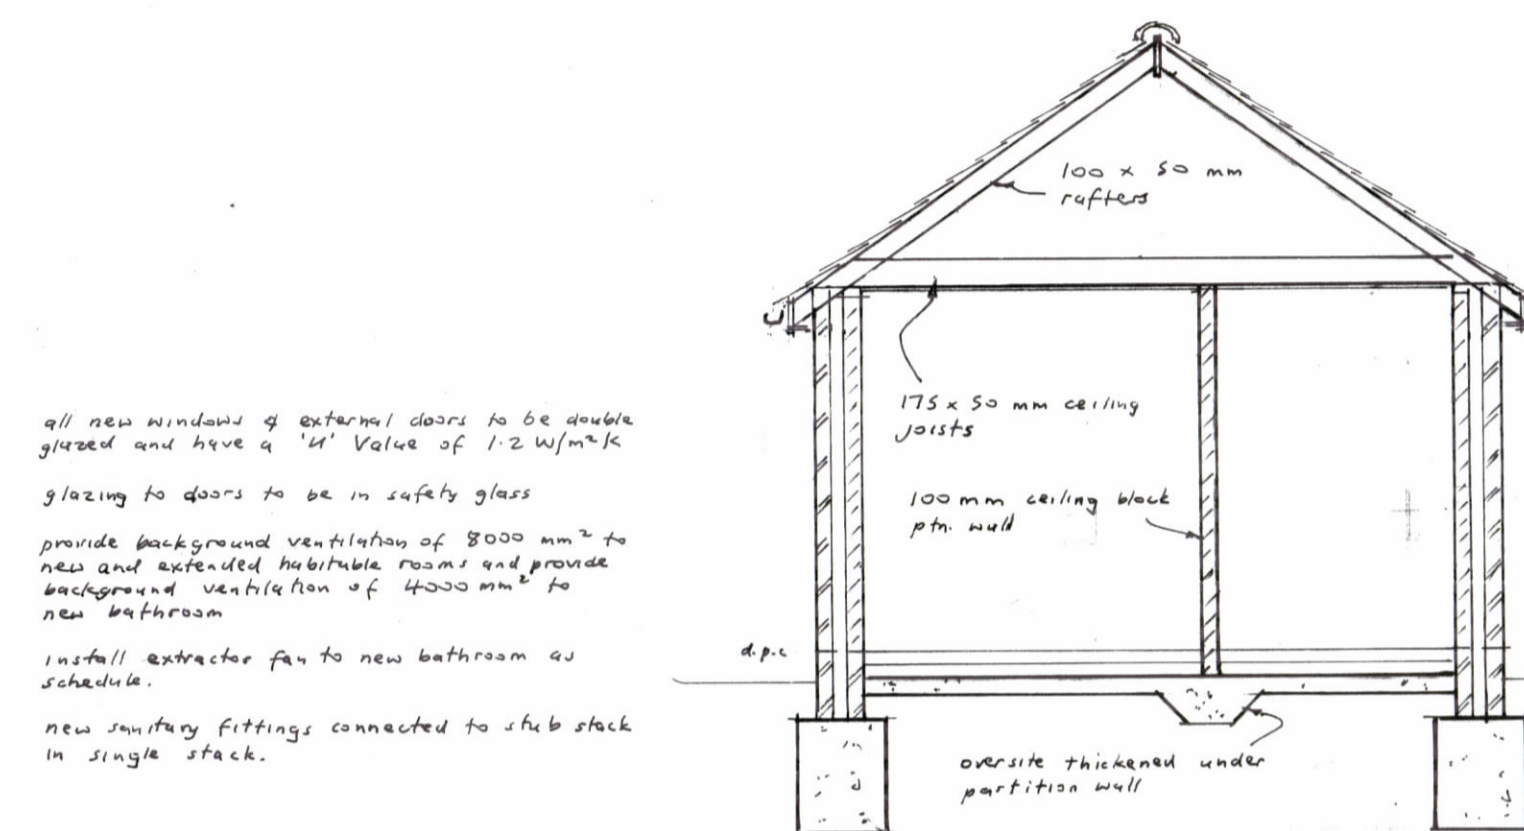 all new windows & external doors to be double
glazed and have a 'U' Value of 1.2 W/m²/K
glazing to doors to be in safety glass
provide background ventilation of 8000 mm² to
new and extended habitable rooms and provide
background ventilation of 4000 mm² to
new bathroom
install extractor fan to new bathroom as
schedule.
new sanitary fittings connected to stub stack
in single stack.
100 x 50 mm
rafters
175 x 50 mm ceiling
joists
100 mm ceiling block
ptn. wall
d.p.c
oversite thickened under
partition wall